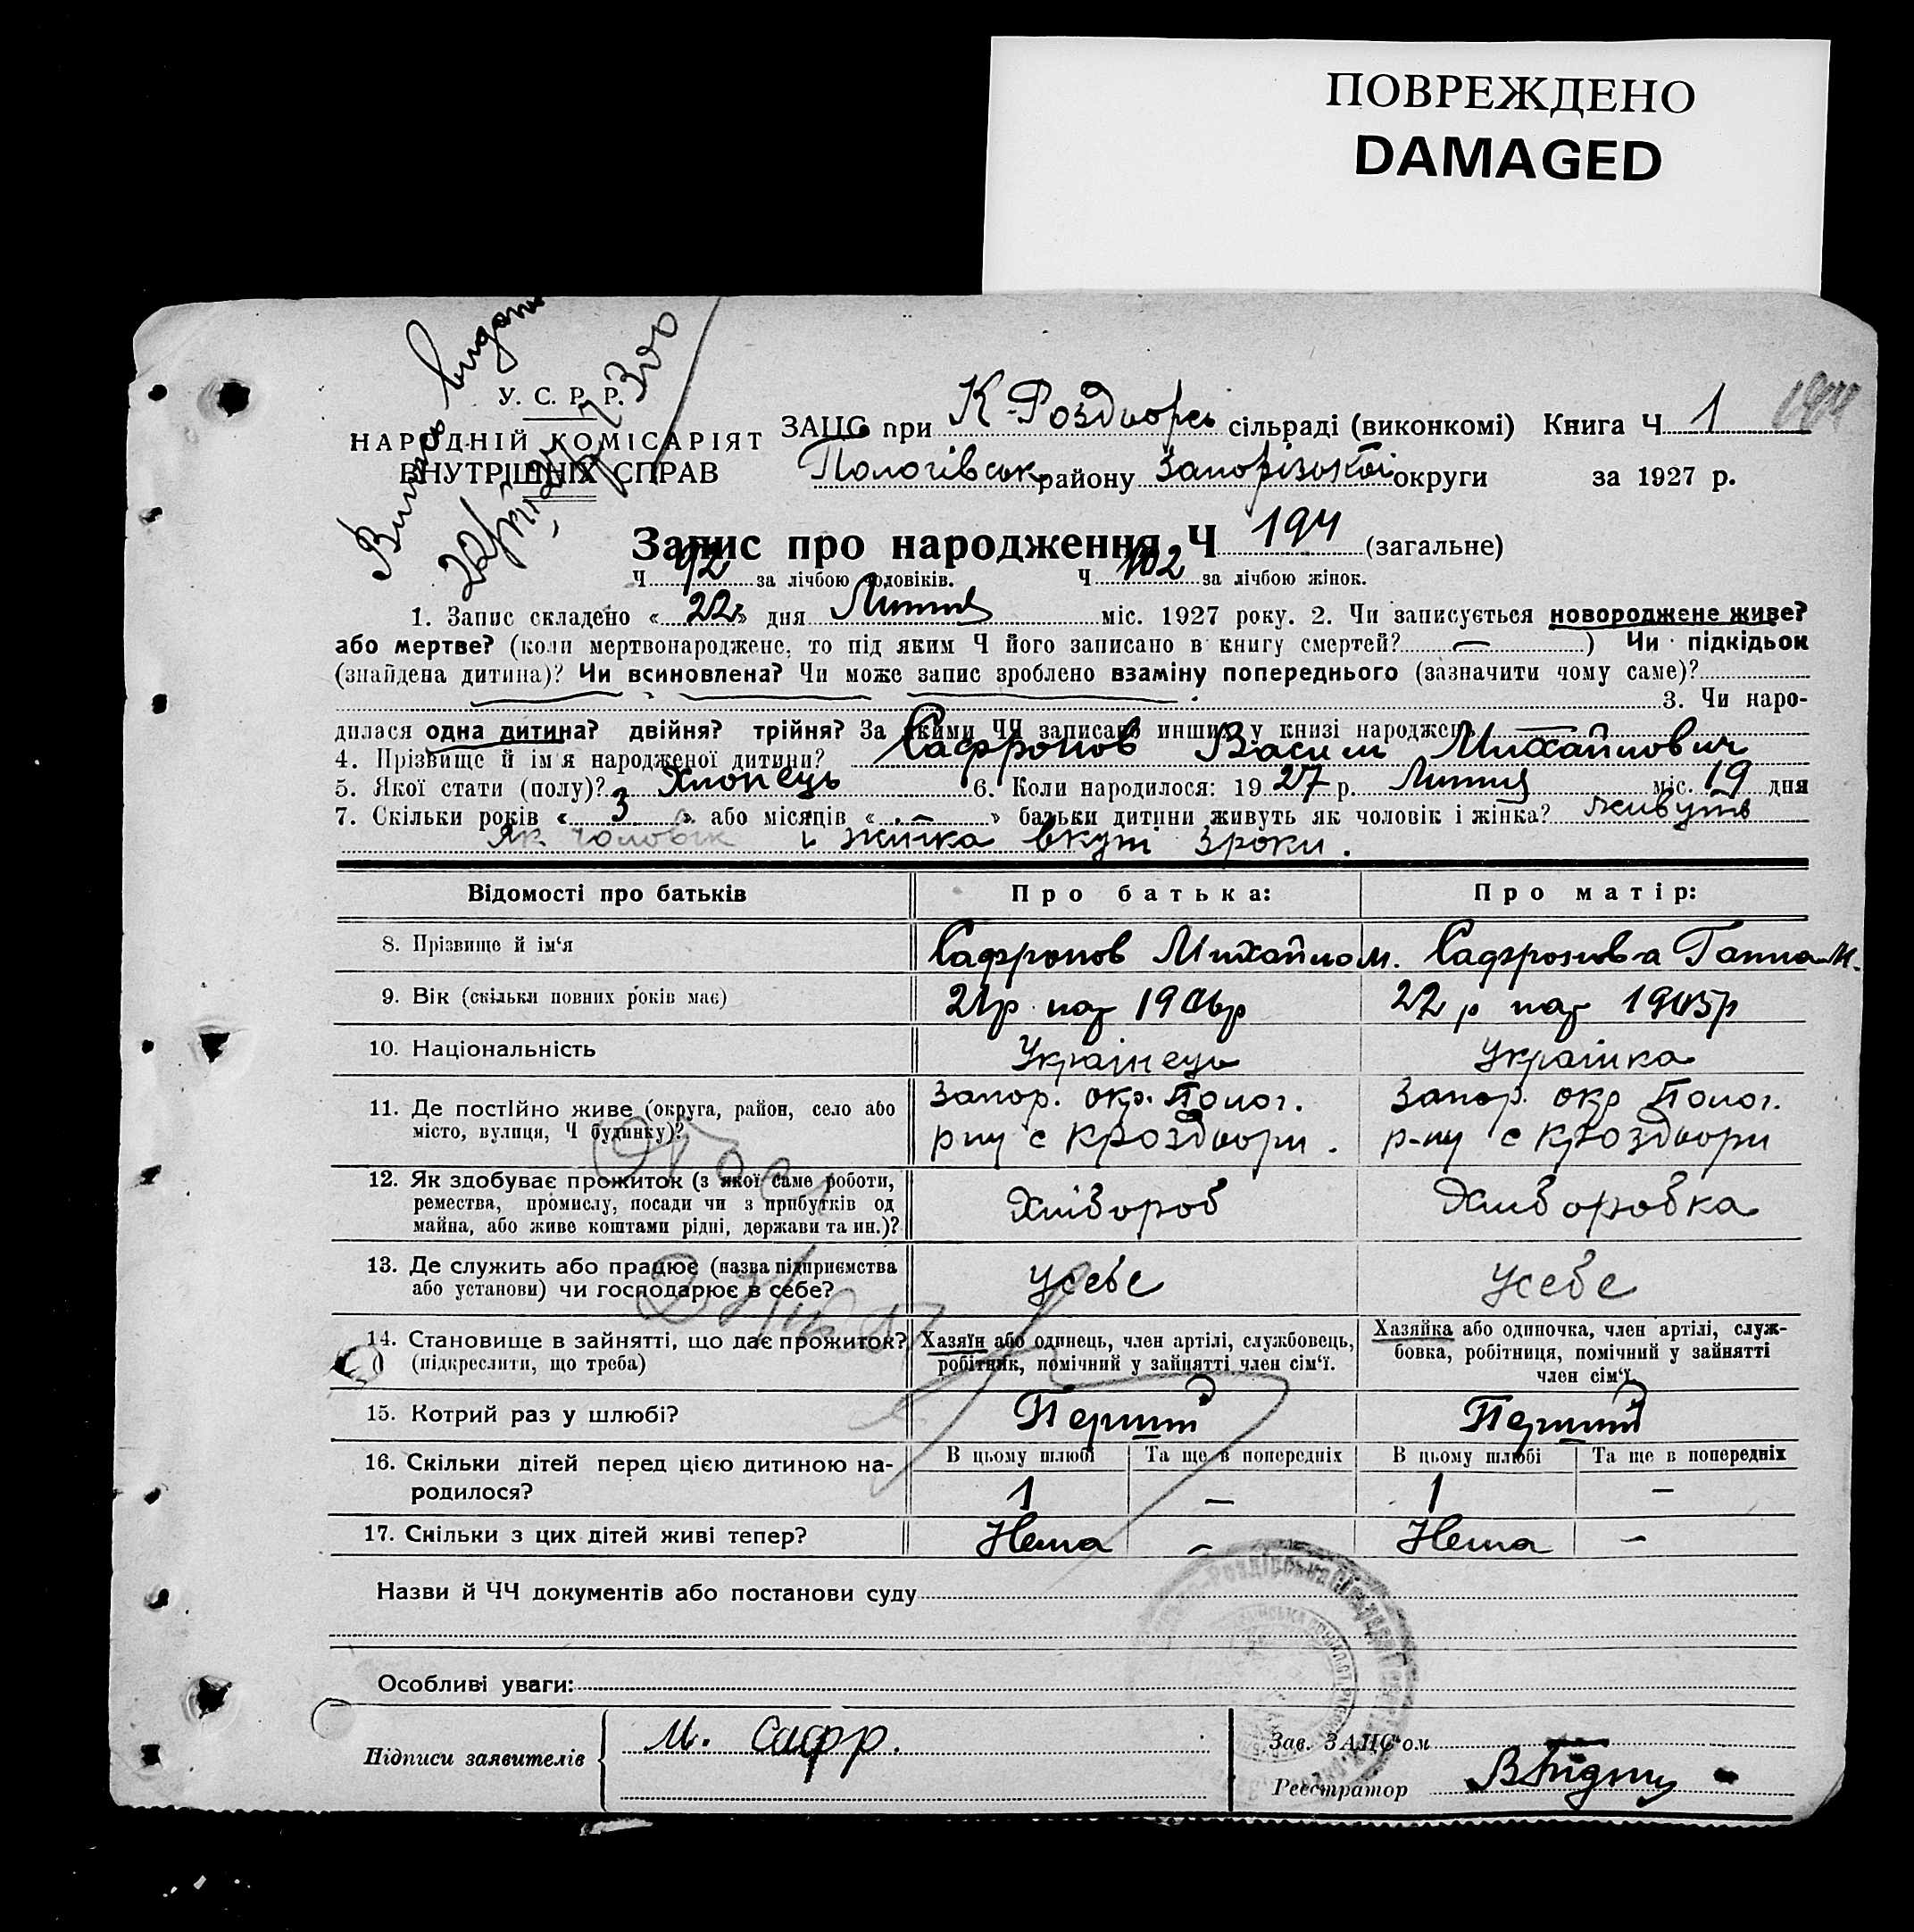 ПОВРЕЖДЕНО
DAMAGED
Випись видано
У. С. Р. Р.
НАРОДНІЙ КОМІСАРІЯТ
ВНУТРІШНІХ СПРАВ
ЗАЦС при К-Роздорсь сільраді (виконкомі) Книга Ч 1 194
Пологівськ району Запорізької округи за 1927 р.
Запис про народження Ч 194 (загальне)
Ч 92 за лічбою чоловіків. Ч 102 за лічбою жінок.
1. Запис складено «22» дня Липня міс. 1927 року. 2. Чи записується новороджене живе?
або мертве? (коли мертвонароджене, то під яким Ч його записано в книгу смертей? — ) Чи підкідьок
(знайдена дитина)? Чи всиновлена? Чи може запис зроблено взаміну попереднього (зазначити чому саме)?
3. Чи наро-
дилася одна дитина? двійня? трійня? За якими ЧЧ записано инших у книзі народжень
4. Прізвище й ім'я народженої дитини? Сафронов Василь Михайлович
5. Якої стати (полу)? Хлопець 6. Коли народилося: 1927 р. Липня міс. 19 дня
7. Скільки років «3» або місяців « - » батьки дитини живуть як чоловік і жінка? живуть
як чоловік і жінка вкупі 3 роки.
Відомості про батьків Про батька: Про матір:
8. Прізвище й ім'я Сафронов Михайло М. Сафронова Ганна М.
9. Вік (скільки повних років має) 21 р. нар 1906 р 22 р нар 1905 р
10. Національність Українець Українка
11. Де постійно живе (округа, район, село або Запор. окр. Полог. Запор. окр Полог.
місто, вулиця, Ч будинку)? р-ну с К роздори. р-ну с К роздори
12. Як здобуває прожиток (з якої саме роботи,
ремества, промислу, посади чи з прибутків од Хлібороб Хліборобка
майна, або живе коштами рідні, держави та ин.)?
13. Де служить або працює (назва підприємства
або установи) чи господарює в себе? У себе У себе
14. Становище в зайнятті, що дає прожиток? Хазяїн або одинець, член артілі, службовець, Хазяйка або одиночка, член артілі, служ-
(підкреслити, що треба) робітник, помічний у зайнятті член сім'ї. бовка, робітниця, помічний у зайнятті
член сім'ї.
15. Котрий раз у шлюбі? Перший Перший
16. Скільки дітей перед цією дитиною на- В цьому шлюбі Та ще в попередніх В цьому шлюбі Та ще в попередніх
родилося? 1 — 1 —
17. Скільки з цих дітей живі тепер? Нема - Нема -
Назви й ЧЧ документів або постанови суду
Особливі уваги:
Підписи заявителів М. Сафр. Зав. ЗАЦС'ом
Реєстратор